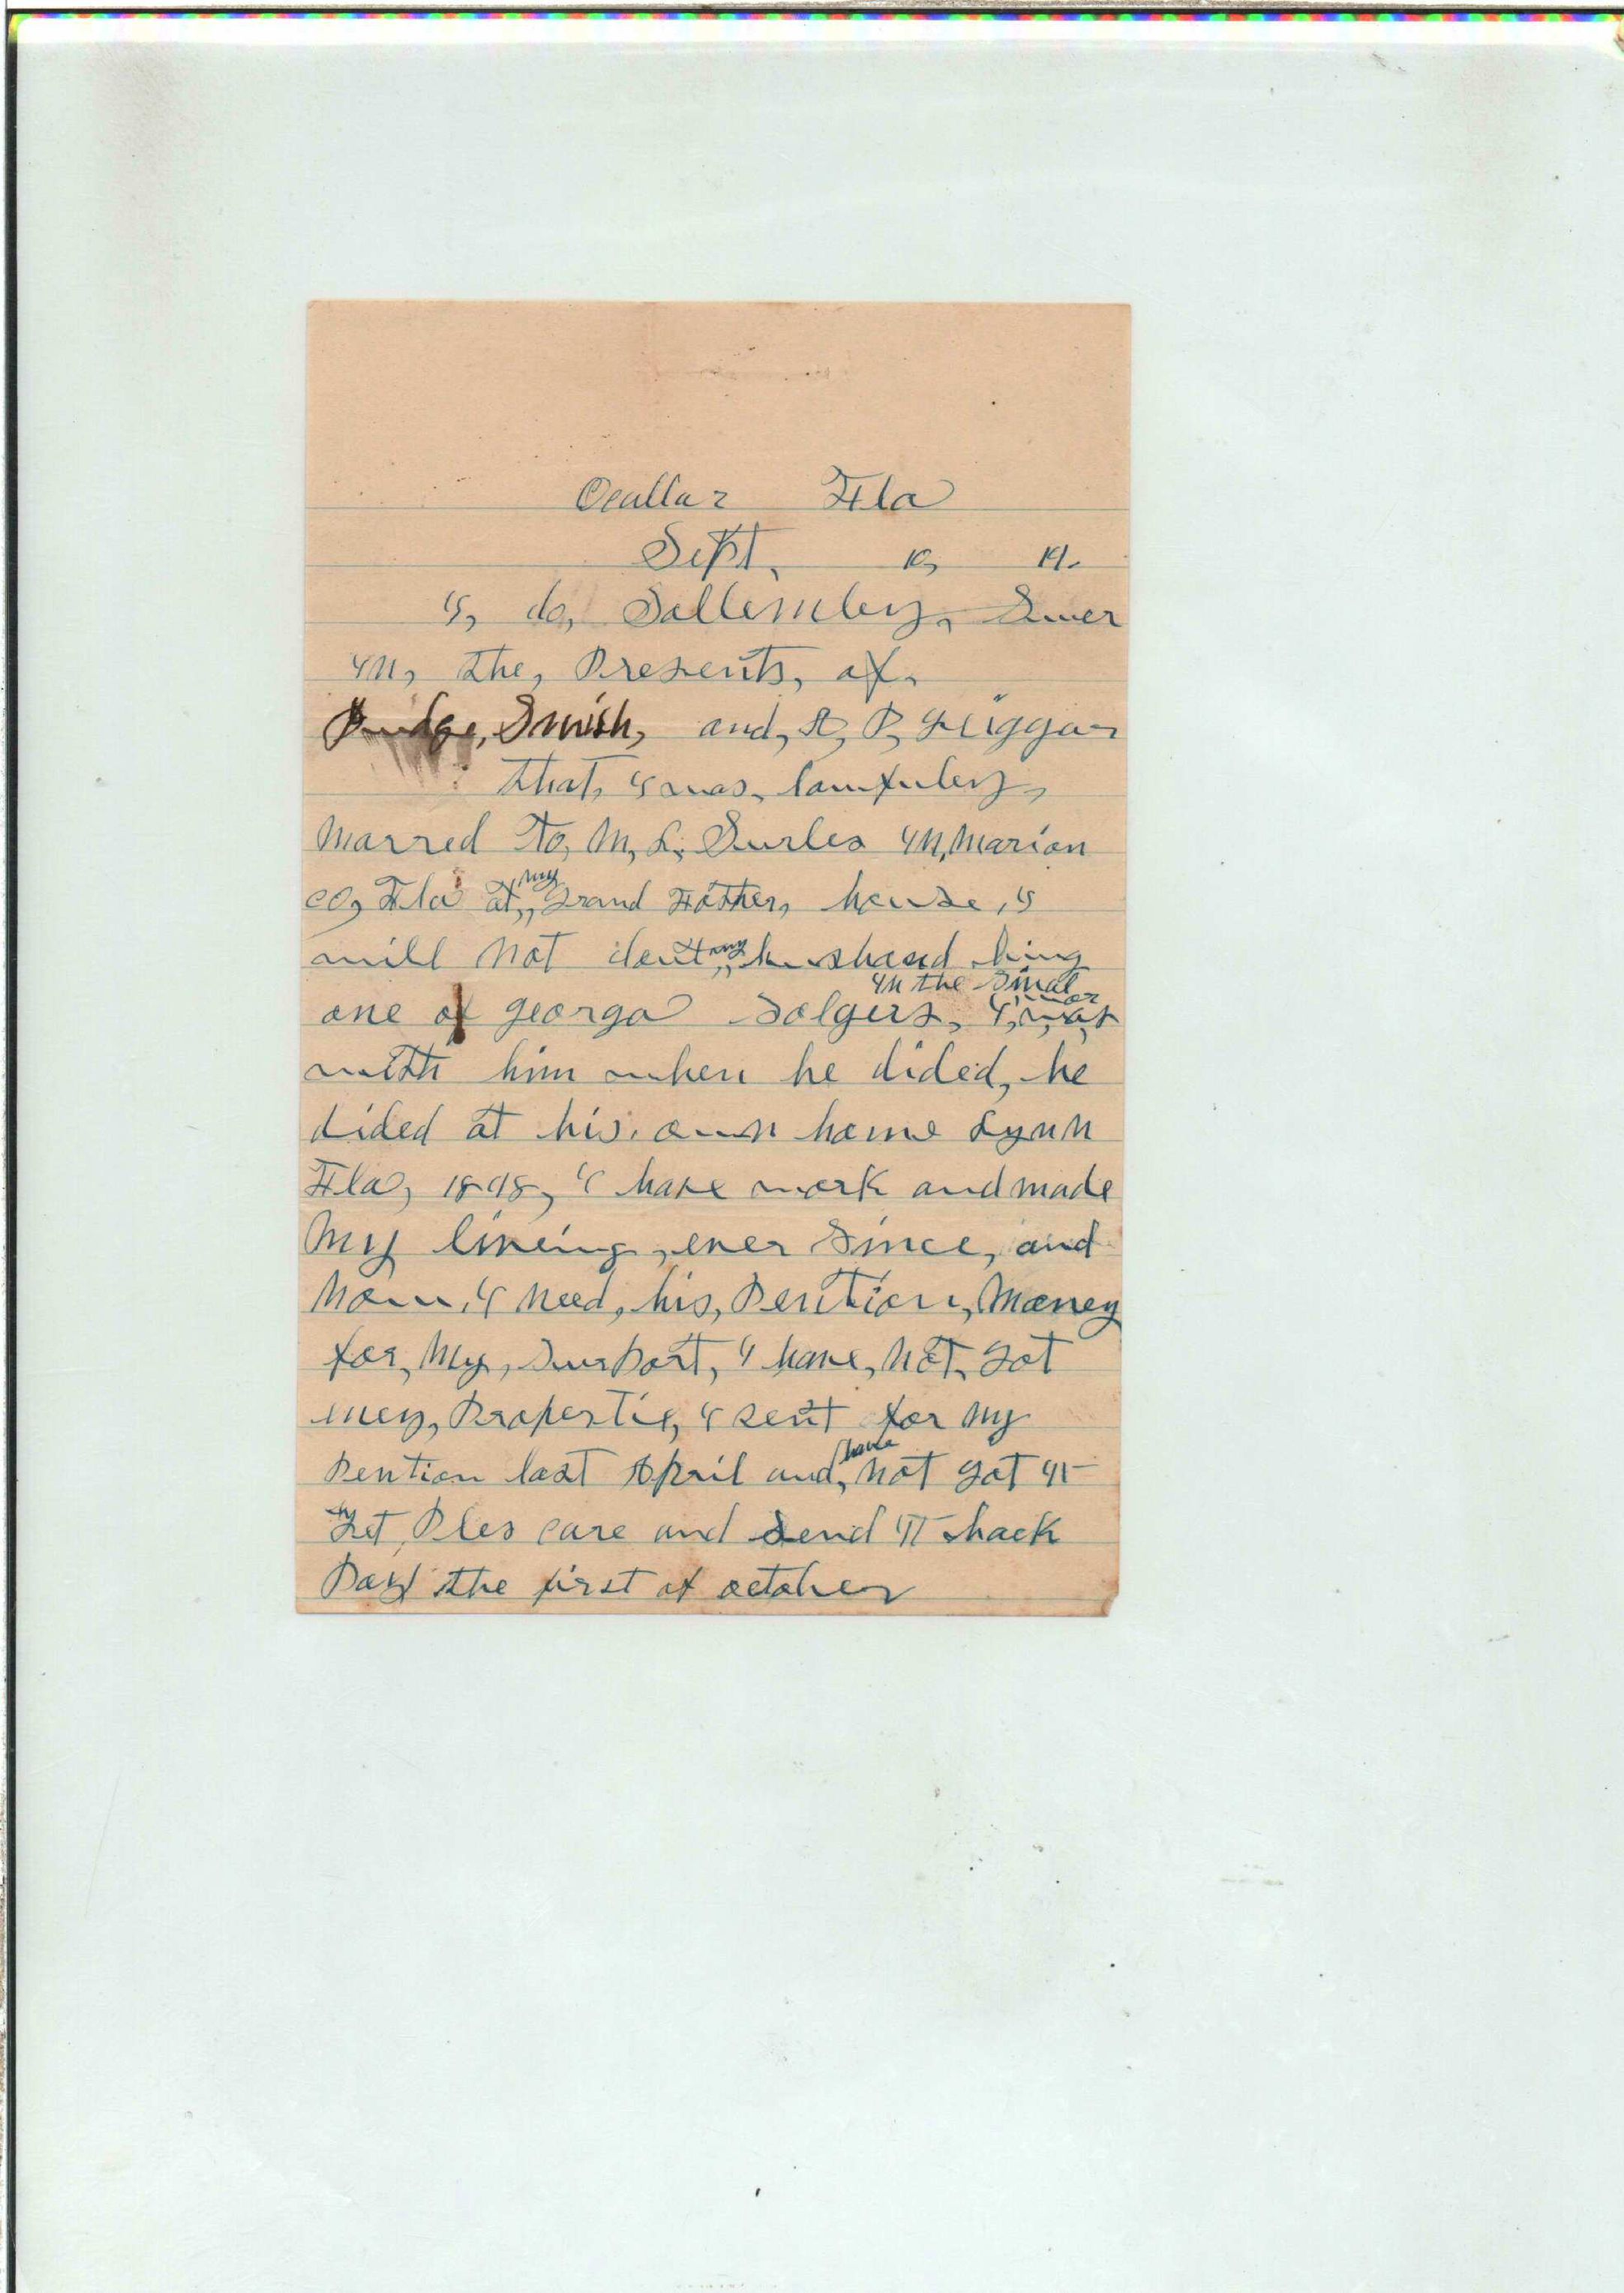 Ocalla Fla
Sept. 10, 19.
I, do, Sollemley, Swer
in, the, Presents, of,
Judge, Smith, and, A, P,
that, I was, lawfuley,
Marred to, M, L, Surles in, Marion
co, Fla at, my Grand Father, house, I
will not dout my husband bing
one of georga Solgers, in the Sival wor I, was
with him when he dided, he
dided at his own home Lynn
Fla, 1898, I have work and made
My liveing, ever Since, and
Now, I need, his, Pention, Money
for, My, Surport, I have, not, got
eney, Propertie, I sent for my
Pention last April and, have not got it
yet, Ples care and Send it back
Pay the first of october